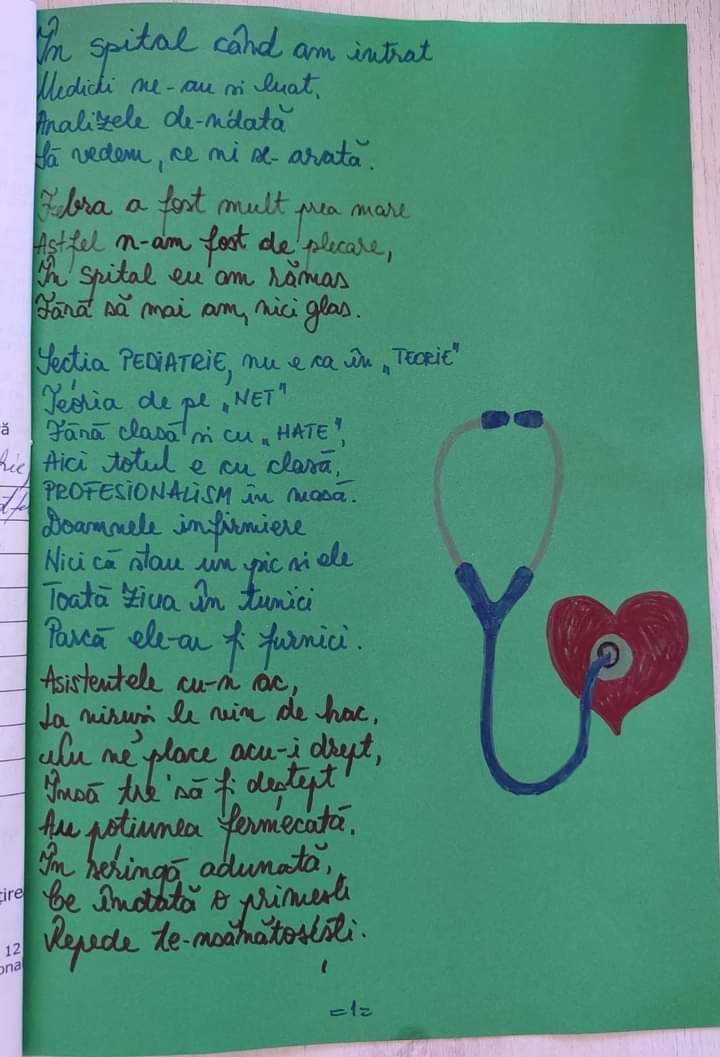 În spital când am intrat
Medicii ne-au și luat,
Analizele de-ndată
Să vedem, ce ni se-arată.
Febra a fost mult prea mare
Astfel n-am fost de plecare,
În spital eu am rămas
Fără să mai am, nici glas.
Secția PEDIATRIE, nu e ca în „TEORIE"
Teoria de pe „NET"
Fără clasă și cu „HATE",
Aici totul e cu clasă,
PROFESIONALISM în masă.
Doamnele infirmiere
Nici că stau un pic și ele
Toată ziua în tunici
Parcă ele-ar fi furnici.
Asistentele cu-n ac,
La viruși le vin de hac,
Nu ne place acu-i drept,
Însă tre' să fi deștept
Au poțiunea fermecată,
În seringă adunată,
Ce îndată o primești
Repede te-nsănătosești.
=1=
ă
țire
12
onal